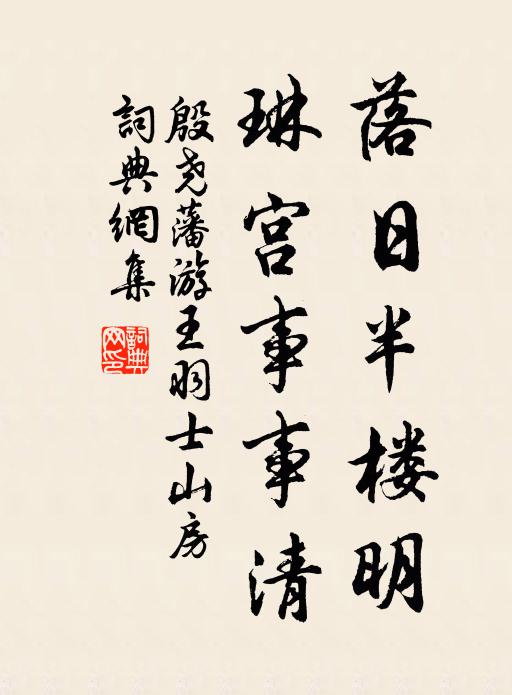 落日半楼明
琳宫事事清
殷尧藩游王羽士山房
詞典網集
詞典网印